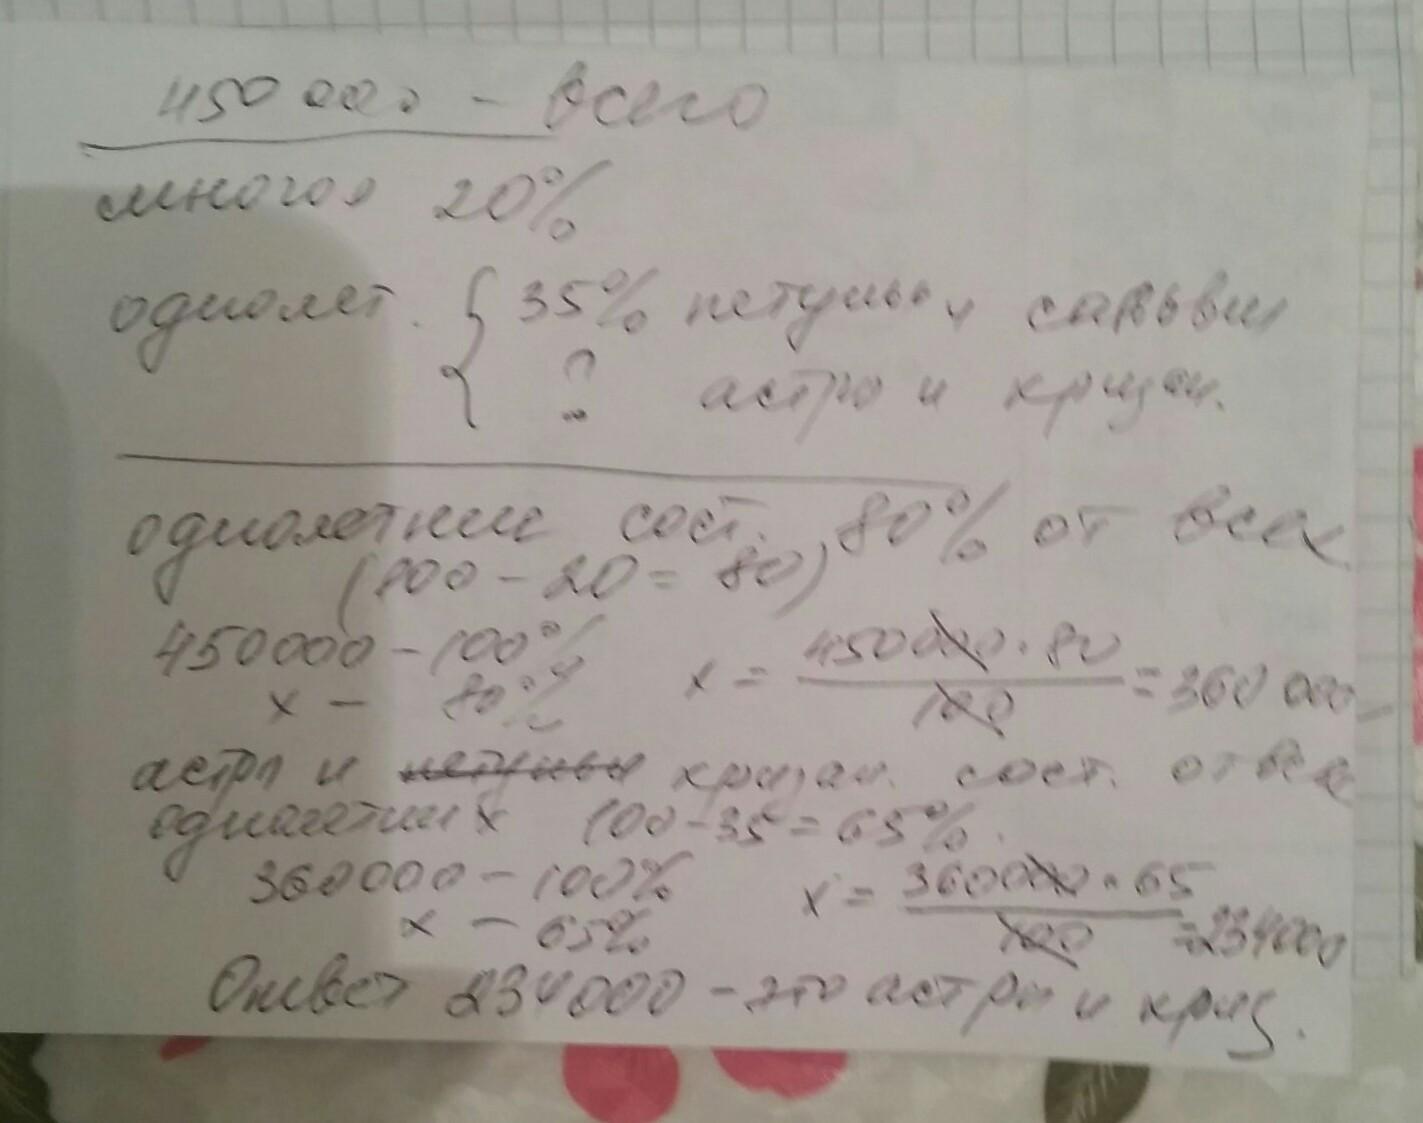 450 000 - всего
многол 20%
однолет. { 35% петуньи и сальвии
? астры и хризан.
однолетние сост. 80% от всех
(100 - 20 = 80)
450000 - 100%
x - 80% x = 450000 · 80 / 100 = 360 000
астры и петуньи хризан. сост. от всех
однолетних 100 - 35 = 65%.
360000 - 100%
x - 65% x = 360000 · 65 / 100 = 234000
Ответ 234000 - это астры и хриз.